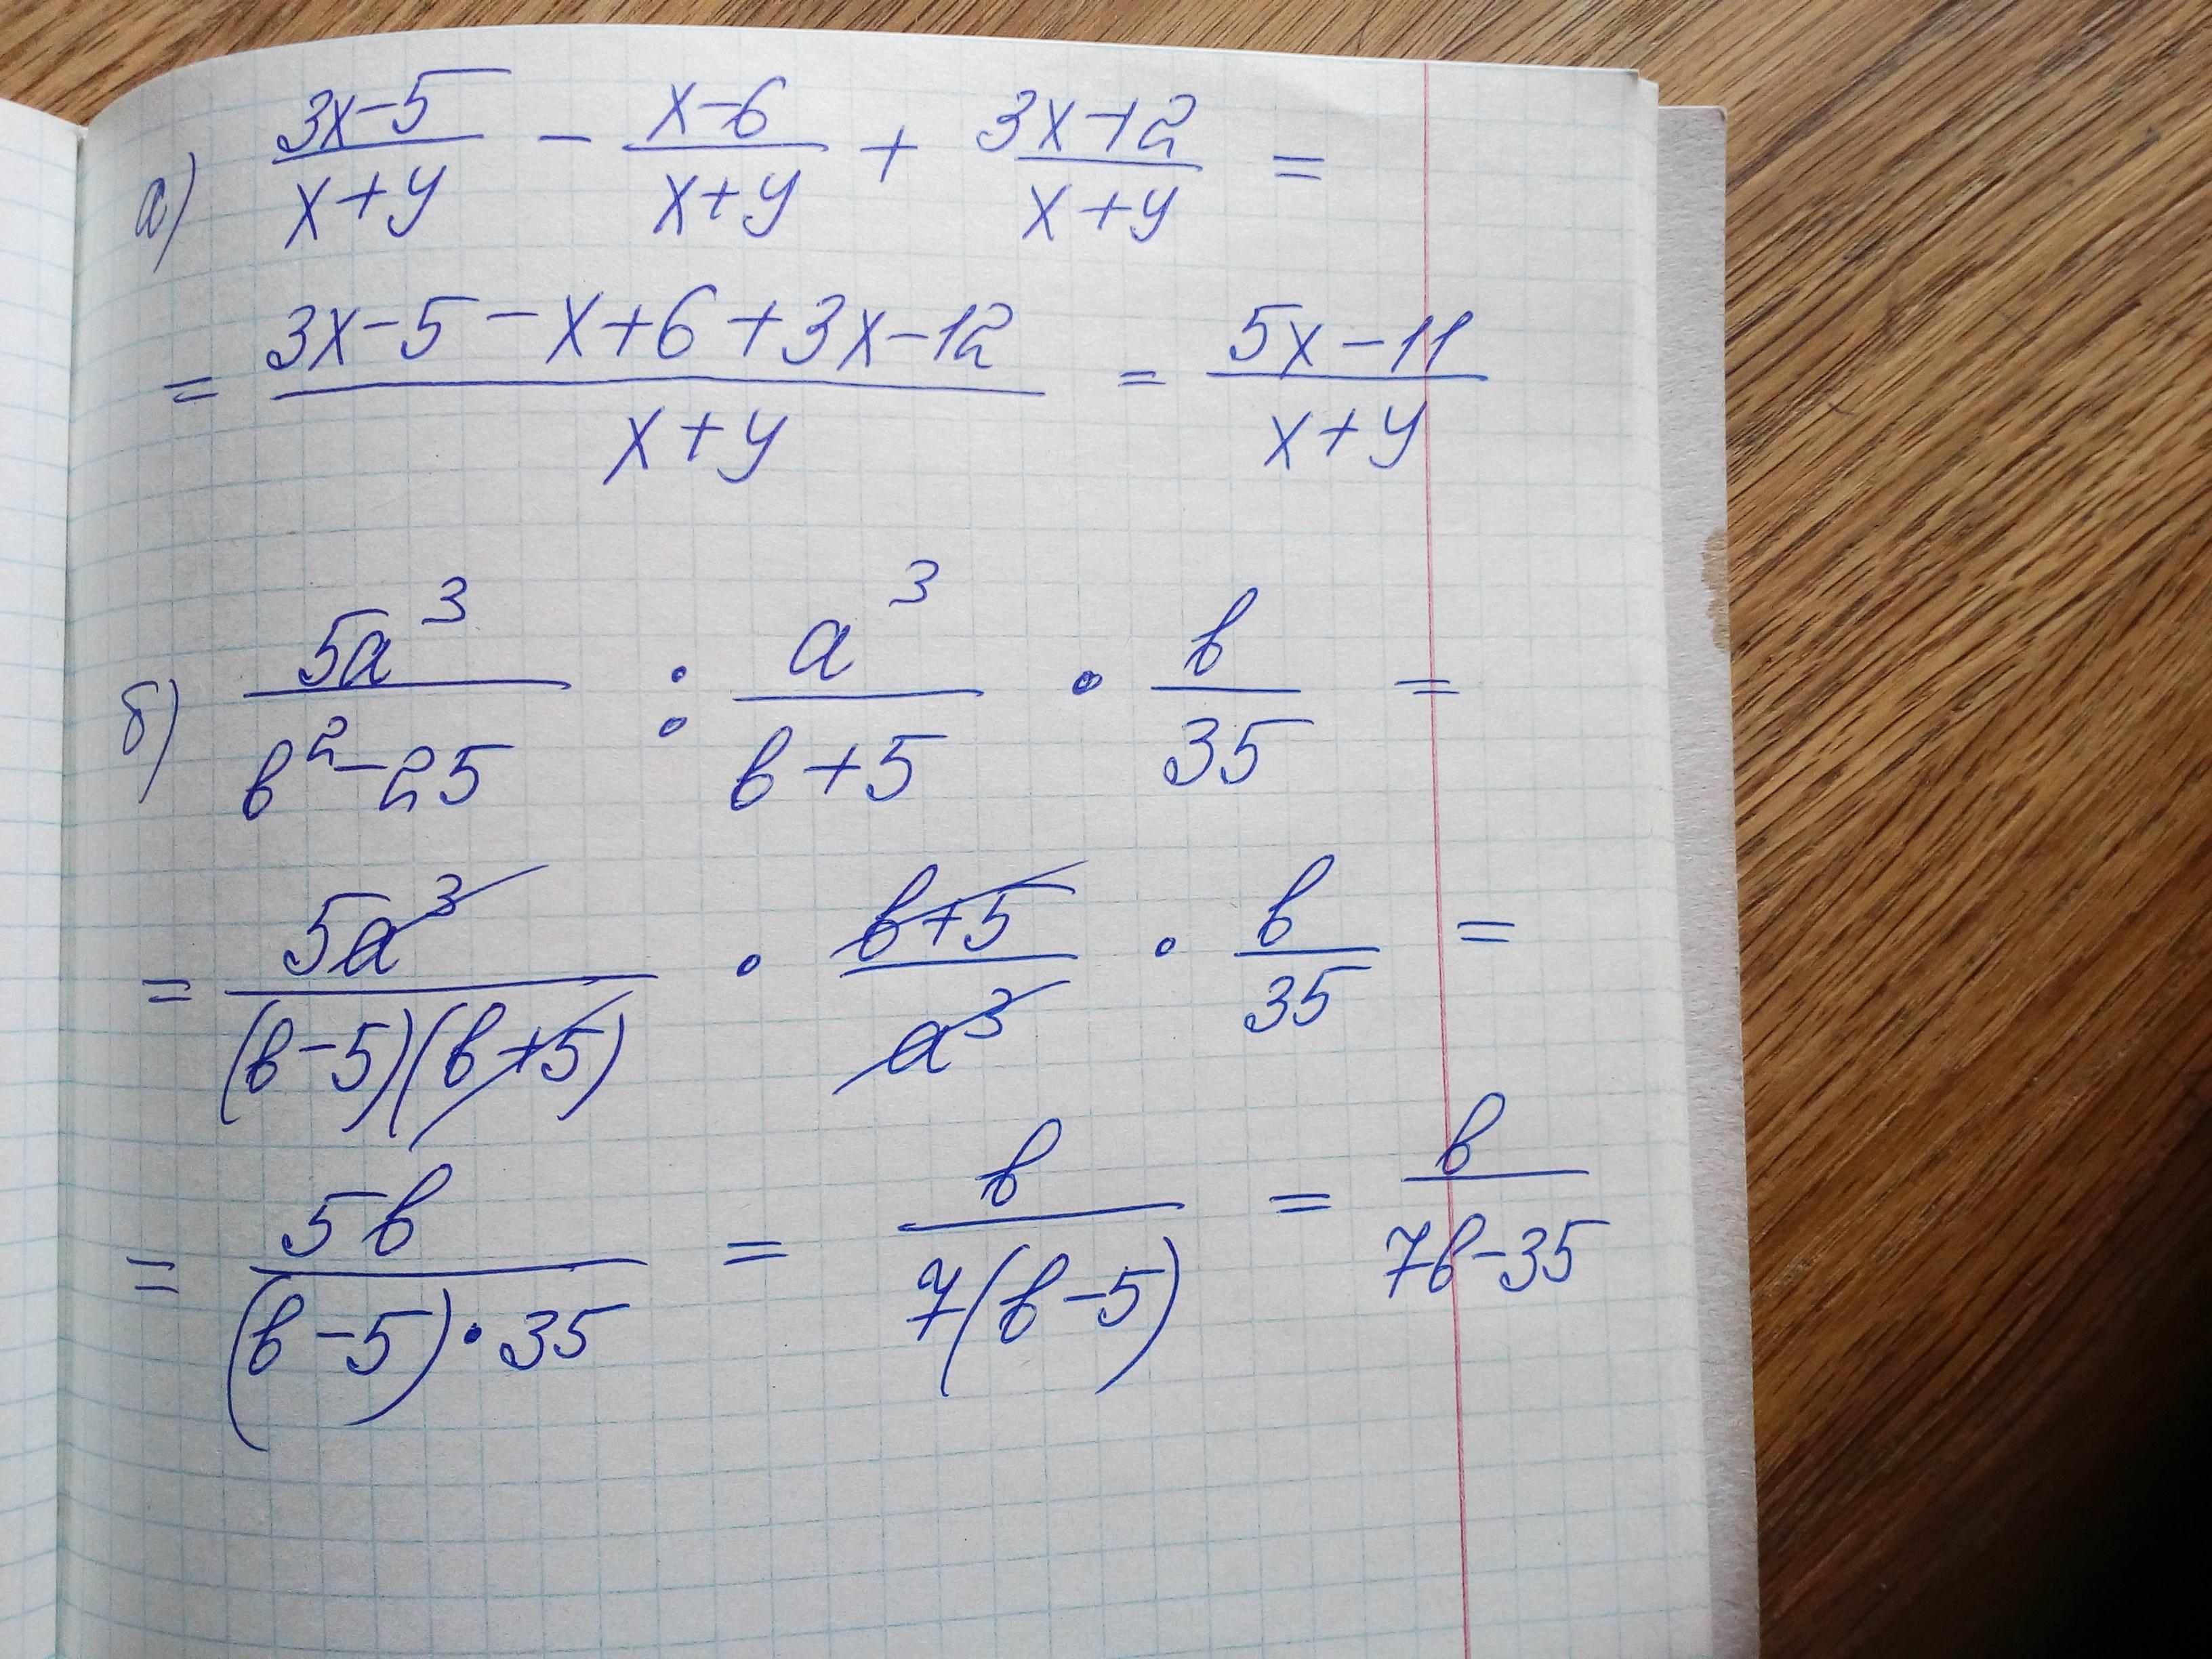 а) (3x-5)/(x+y) - (x-6)/(x+y) + (3x-12)/(x+y) =
= (3x-5-x+6+3x-12)/(x+y) = (5x-11)/(x+y)
б) 5a³/(b²-25) : a³/(b+5) • b/35 =
= 5a³/((b-5)(b+5)) • (b+5)/a³ • b/35 =
= 5b/((b-5)•35) = b/(7(b-5)) = b/(7b-35)